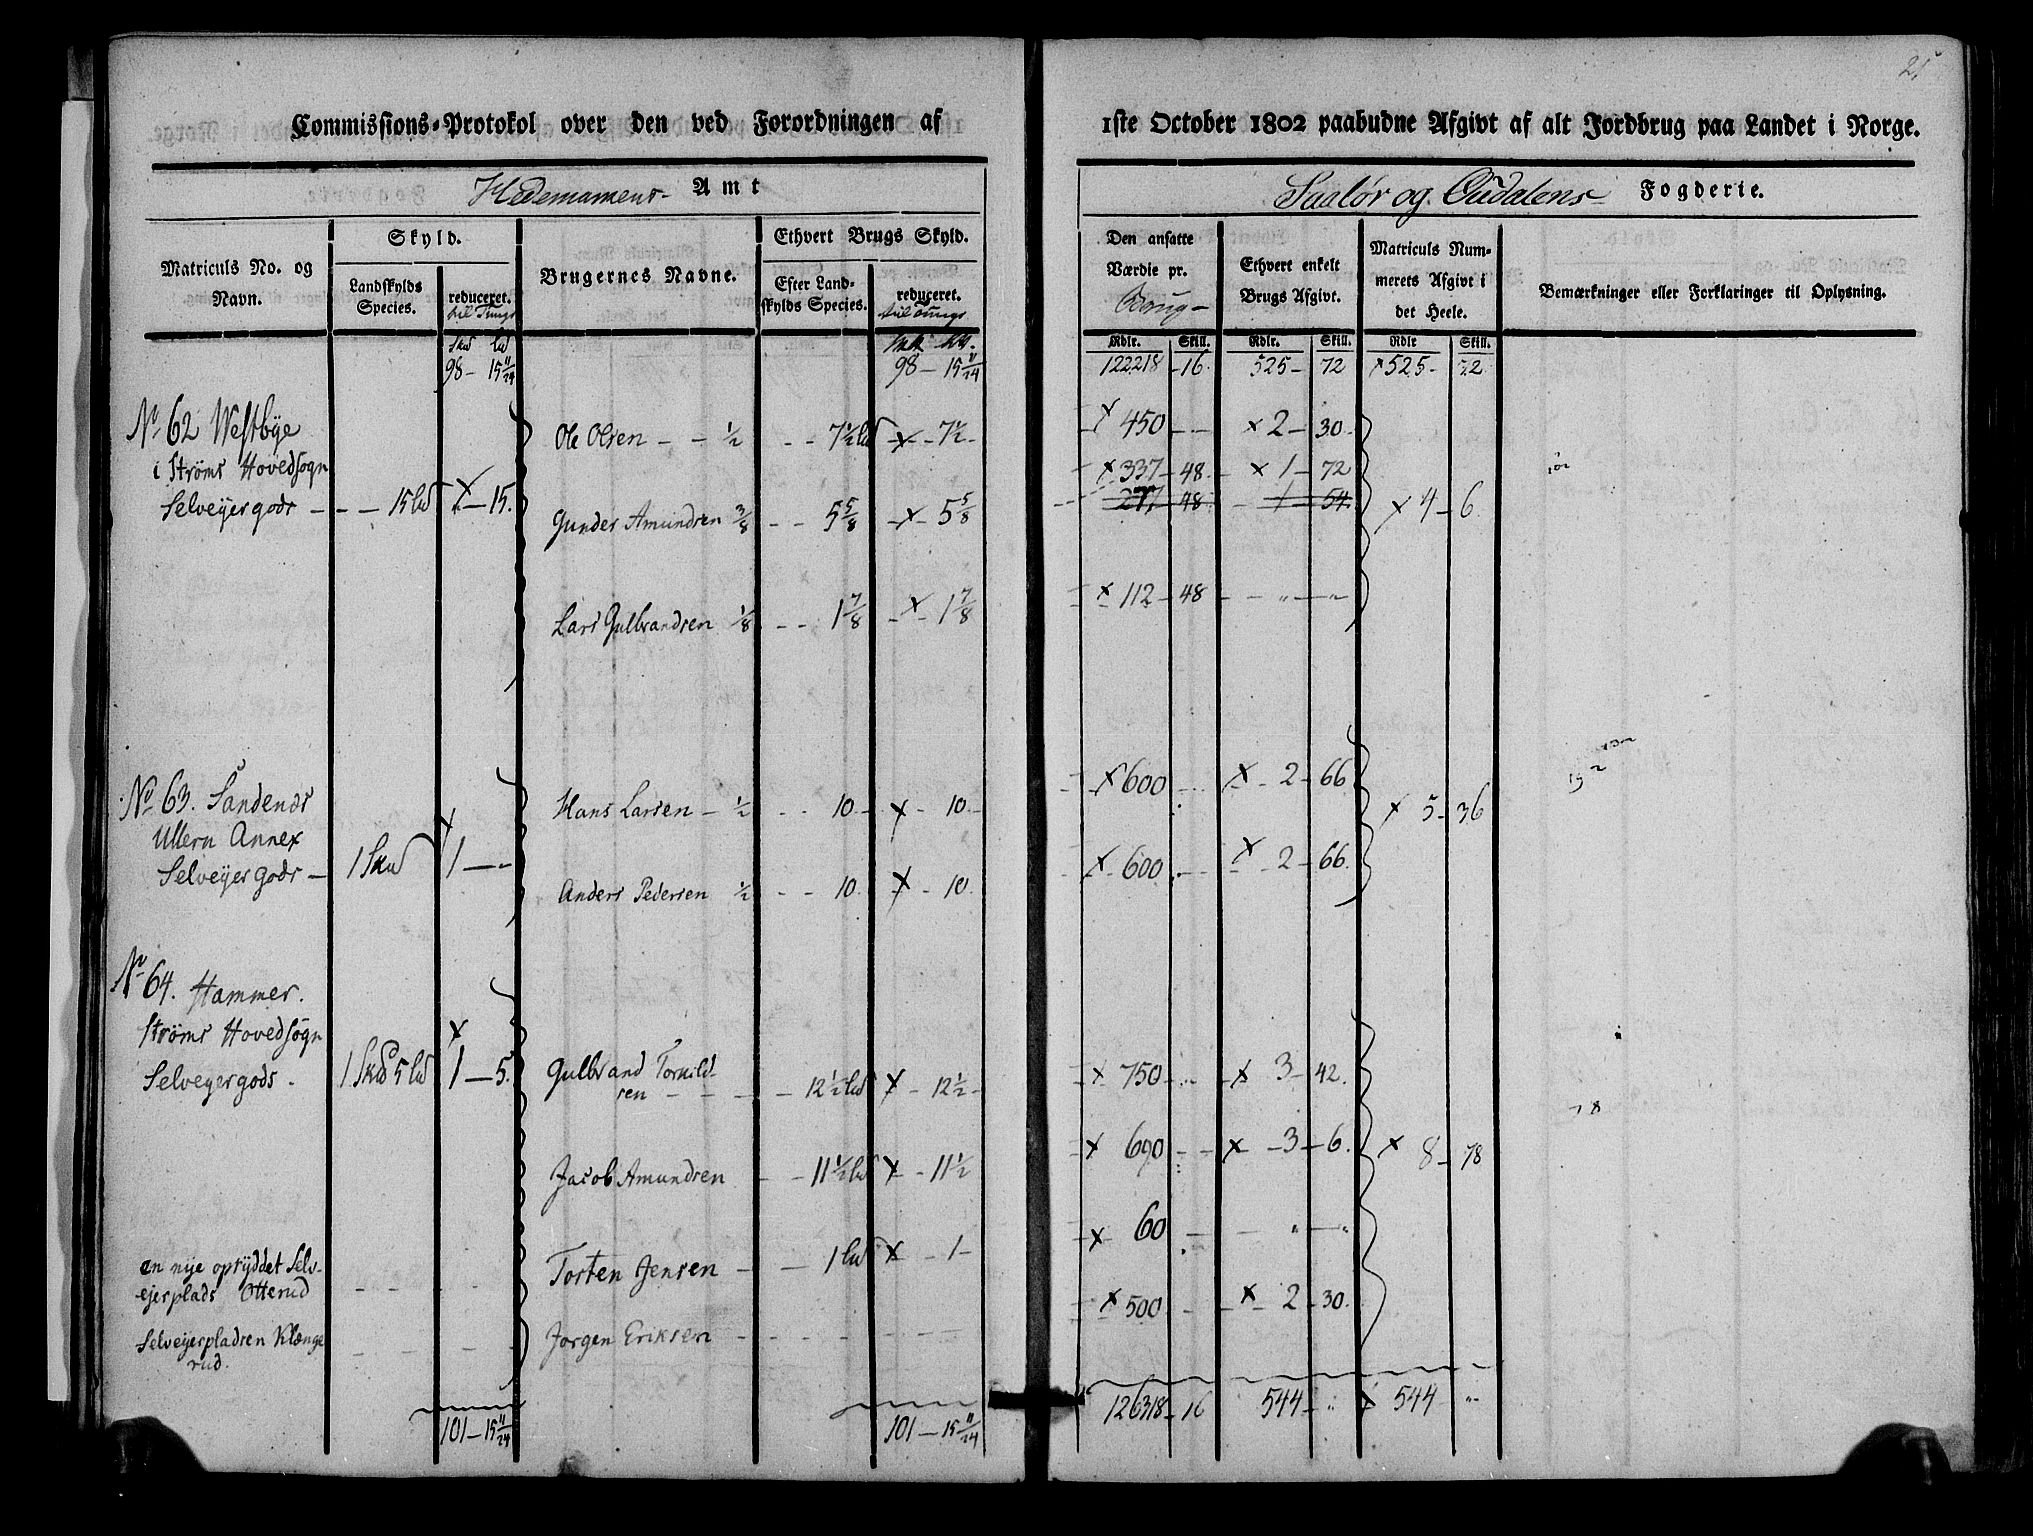 25
Commissions-Protokol over den ved Forordningen af 1ste October 1802 paabudne Afgivt af alt Jordbrug paa Landet i Norge.
Hedemarkens Amt
Soelør og Oudalens Fogderie.
Matriculs No. og Navn.
Skyld.
Landskylds Species.
reduceret.
til Tunge
Brugernes Navne.
Ethvert Brugs Skyld.
Efter Landskylds Species.
reduceret.
til Tunge
Den ansatte Værdie pr.
Brug
Ethvert enkelt Brugs Afgivt.
Matriculs Nummerets Afgivt i det Heele.
Bemærkninger eller Forklaringer til Oplysning.
Rdlr. Skill. Rdlr. Skill. Rdlr Skill.
98 - 15 11/24 98 - 15 11/24 122218 - 16. 525 - 72 x 525 - 72
No 62 Westbye
i Strøms Hovedsogn
Selveyergods - - - 15 lb x - 15.
Ole Olsen - - 1/2 - - 7½ lb x - 7½ - x 450 - - x 2 - 30.
x 337 - 48 - x 1 - 72
277 - 48 - 1 - 54.
Gunder Amundsen 3/8 - - 5 5/8 - x - 5 5/8 x 4 - 6
Lars Gulbrandsen 1/8 - - 1 7/8 - x 1 7/8 x 112 - 48 - - " - "
No 63. Sandenær
Ullern Annex
Selveyergods - 1 Skd x 1 - -
Hans Larsen - 1/2 - - 10 - x - 10 - x 600 - - x - 2 - 66 x 5 - 36
Anders Pedersen 1/2 - - 10 - x - 10 x - 600 - - x - 2 - 66.
No 64. Hammer.
Strøms Hovedsogn
Selveyergods - 1 Skd 5 lb x 1 - 5.
Gulbrand Torkild-
sen - - - - 12½ lb x - 12½ - x 750 - - x 3 - 42.
Jacob Amundsen - - 11½ lb x - 11½ x 690 - - x - 3 - 6. x 8 - 78
en nye optyddet Selv-
ejerplads Otterud - - - -
Torsten Jensen - - 1 lb x - 1 - x 60 - - " - "
Selveyerpladsen Klænge
rud. - - - -
Jørgen Eriksen - - - - - - x 500 - - x - 2 - 30.
101 - 15 11/24 101 - 15 11/24 126318 - 16 544 - " x 544 "